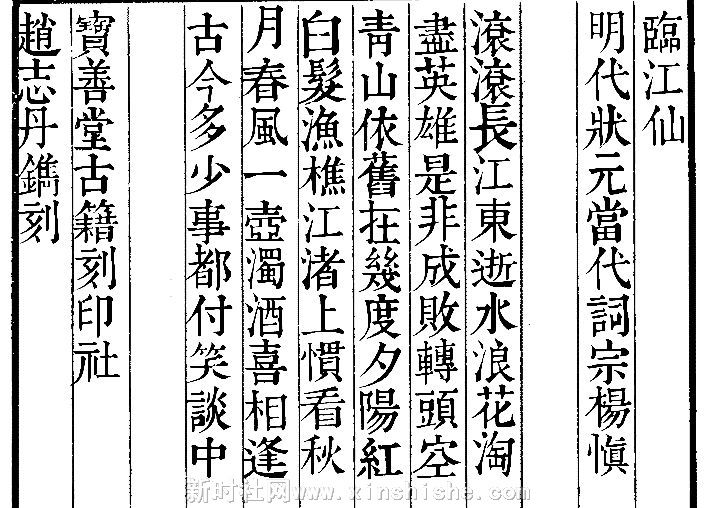 臨江仙
明代狀元當代詞宗楊愼
滾滾長江東逝水浪花淘
盡英雄是非成敗轉頭空
靑山依舊在幾度夕陽紅
白髮漁樵江渚上慣看秋
月春風一壺濁酒喜相逢
古今多少事都付笑談中
寶善堂古籍刻印社
趙志丹鐫刻
新时社网www.xinshishe.com